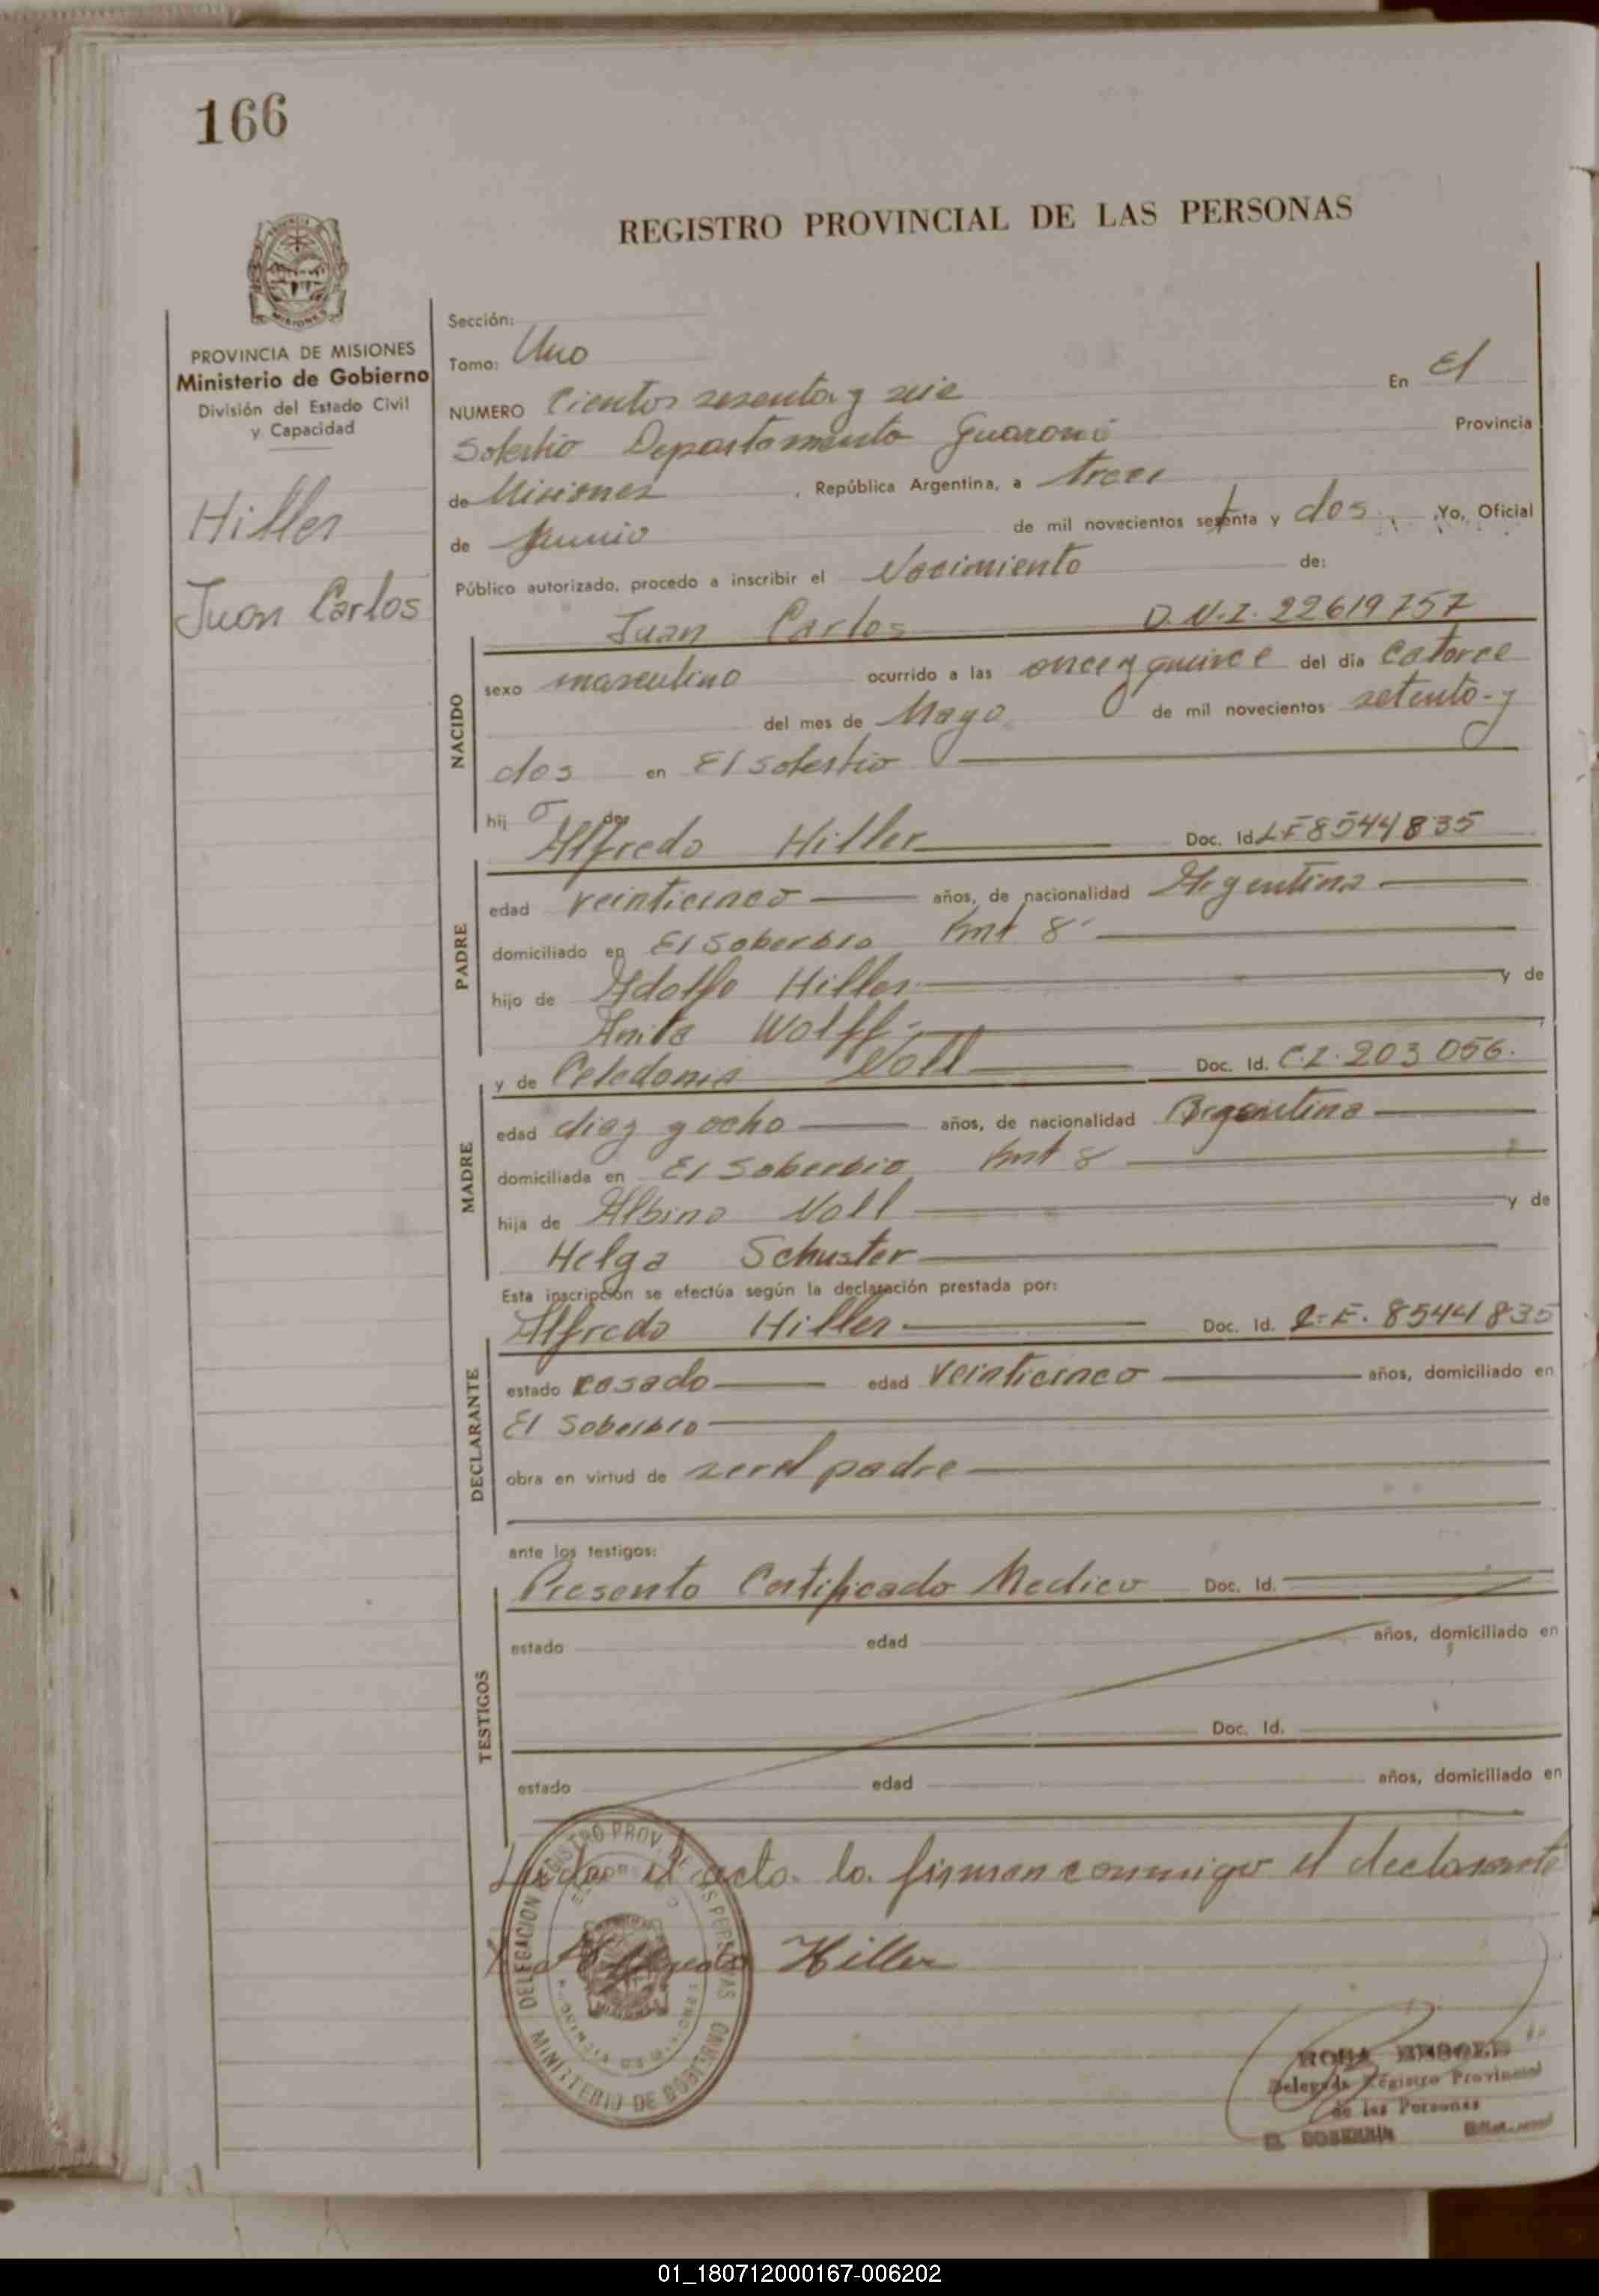 166
REGISTRO PROVINCIAL DE LAS PERSONAS
PROVINCIA DE MISIONES
Ministerio de Gobierno
División del Estado Civil
y Capacidad
Hiller
Juan Carlos
Sección:
Tomo: Uno
NUMERO Cientos sesenta y seis En El
Soberbio Departamento Guaraní Provincia
de Misiones, República Argentina, a trece
de Junio de mil novecientos setenta y dos. Yo, Oficial
Público autorizado, procedo a inscribir el Nacimiento de:
Juan Carlos D.N.I. 22619757
NACIDO
sexo masculino ocurrido a las once y quince del día Catorce
del mes de Mayo de mil novecientos setenta y
dos en El Soberbio
hijo de
Alfredo Hiller Doc. Id. L.E 8544835
PADRE
edad veinticinco años, de nacionalidad Argentina
domiciliado en El Soberbio Kmt 8
hijo de Adolfo Hiller y de
Anita Wolff
y de Celedonia Noll Doc. Id. C.I. 203 056.
MADRE
edad diez y ocho años, de nacionalidad Argentina
domiciliada en El Soberbio Kmt 8
hija de Albino Noll y de
Helga Schuster
Esta inscripción se efectúa según la declaración prestada por:
Alfredo Hiller Doc. Id. L.E. 8544835
DECLARANTE
estado casado edad veinticinco años, domiciliado en
El Soberbio
obra en virtud de ser el padre
ante los testigos:
Presento Certificado Medico Doc. Id.
TESTIGOS
estado edad años, domiciliado en
Doc. Id.
estado edad años, domiciliado en
Leida el acta la firman conmigo el declarante
Hiller
DELEGACION REGISTRO PROV. DE LAS PERSONAS
MINISTERIO DE GOBIERNO
Delegada Registro Provincial
de las Personas
EL SOBERBIO
01_180712000167-006202